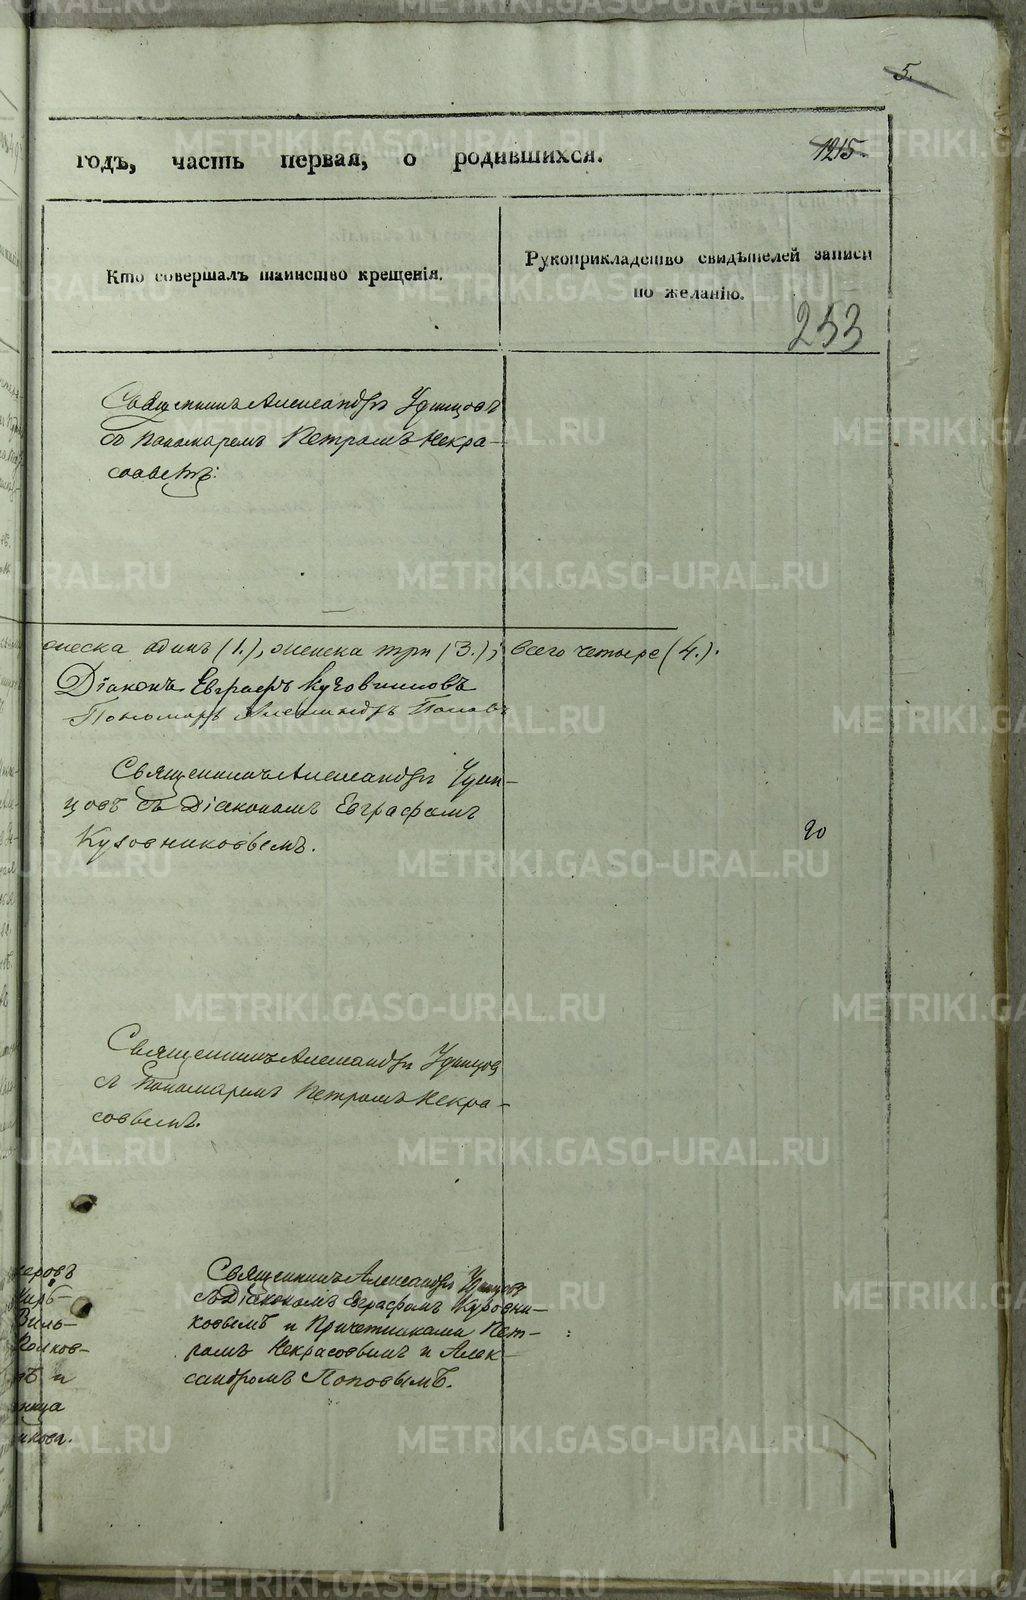 5.
годъ, часть первая, о родившихся.
1215
Кто совершалъ таинство крещенія.
Рукоприкладство свидѣтелей записи
по желанію.
253
Священникъ Александръ Удинцовъ
съ Пономаремъ Петромъ Некра-
совымъ.
жеска одинъ (1.), женска три (3.); всего четыре (4.).
Діаконъ Евграфъ
Пономарь Александръ Поповъ
Священникъ Александръ Удин-
цовъ съ Діакономъ Евграфомъ
20
Священникъ Александръ Удинцовъ
съ Пономаремъ Петромъ Некра-
совымъ.
Священникъ Александръ Удинцовъ
съ Діакономъ Евграфомъ
ковымъ и Причетниками Пет-
ромъ Некрасовымъ и Алек-
сандромъ Поповымъ.
METRIKI.GASO-URAL.RU